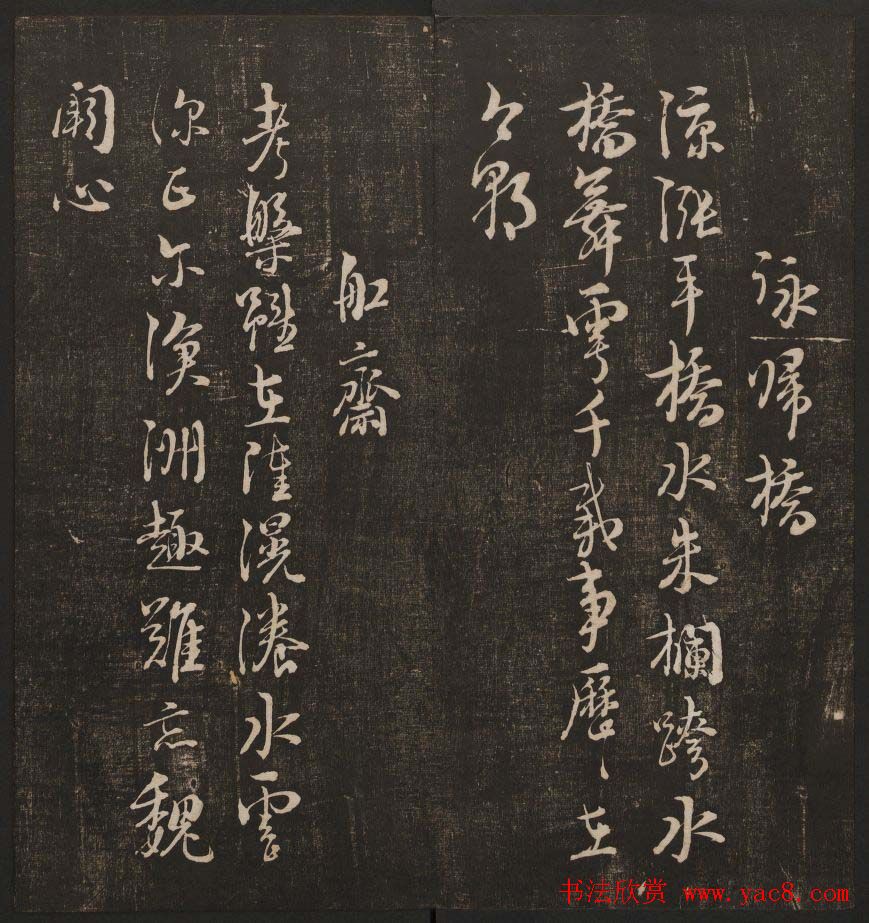 詠歸橋
涼漲平橋水朱欄跨水
橋舞雩千載事歷〻在
今朝
舡齋
考槃雖在陸滉瀁水雲
深正尔滄洲趣難忘魏
闕心
书法欣赏 www.yac8.com